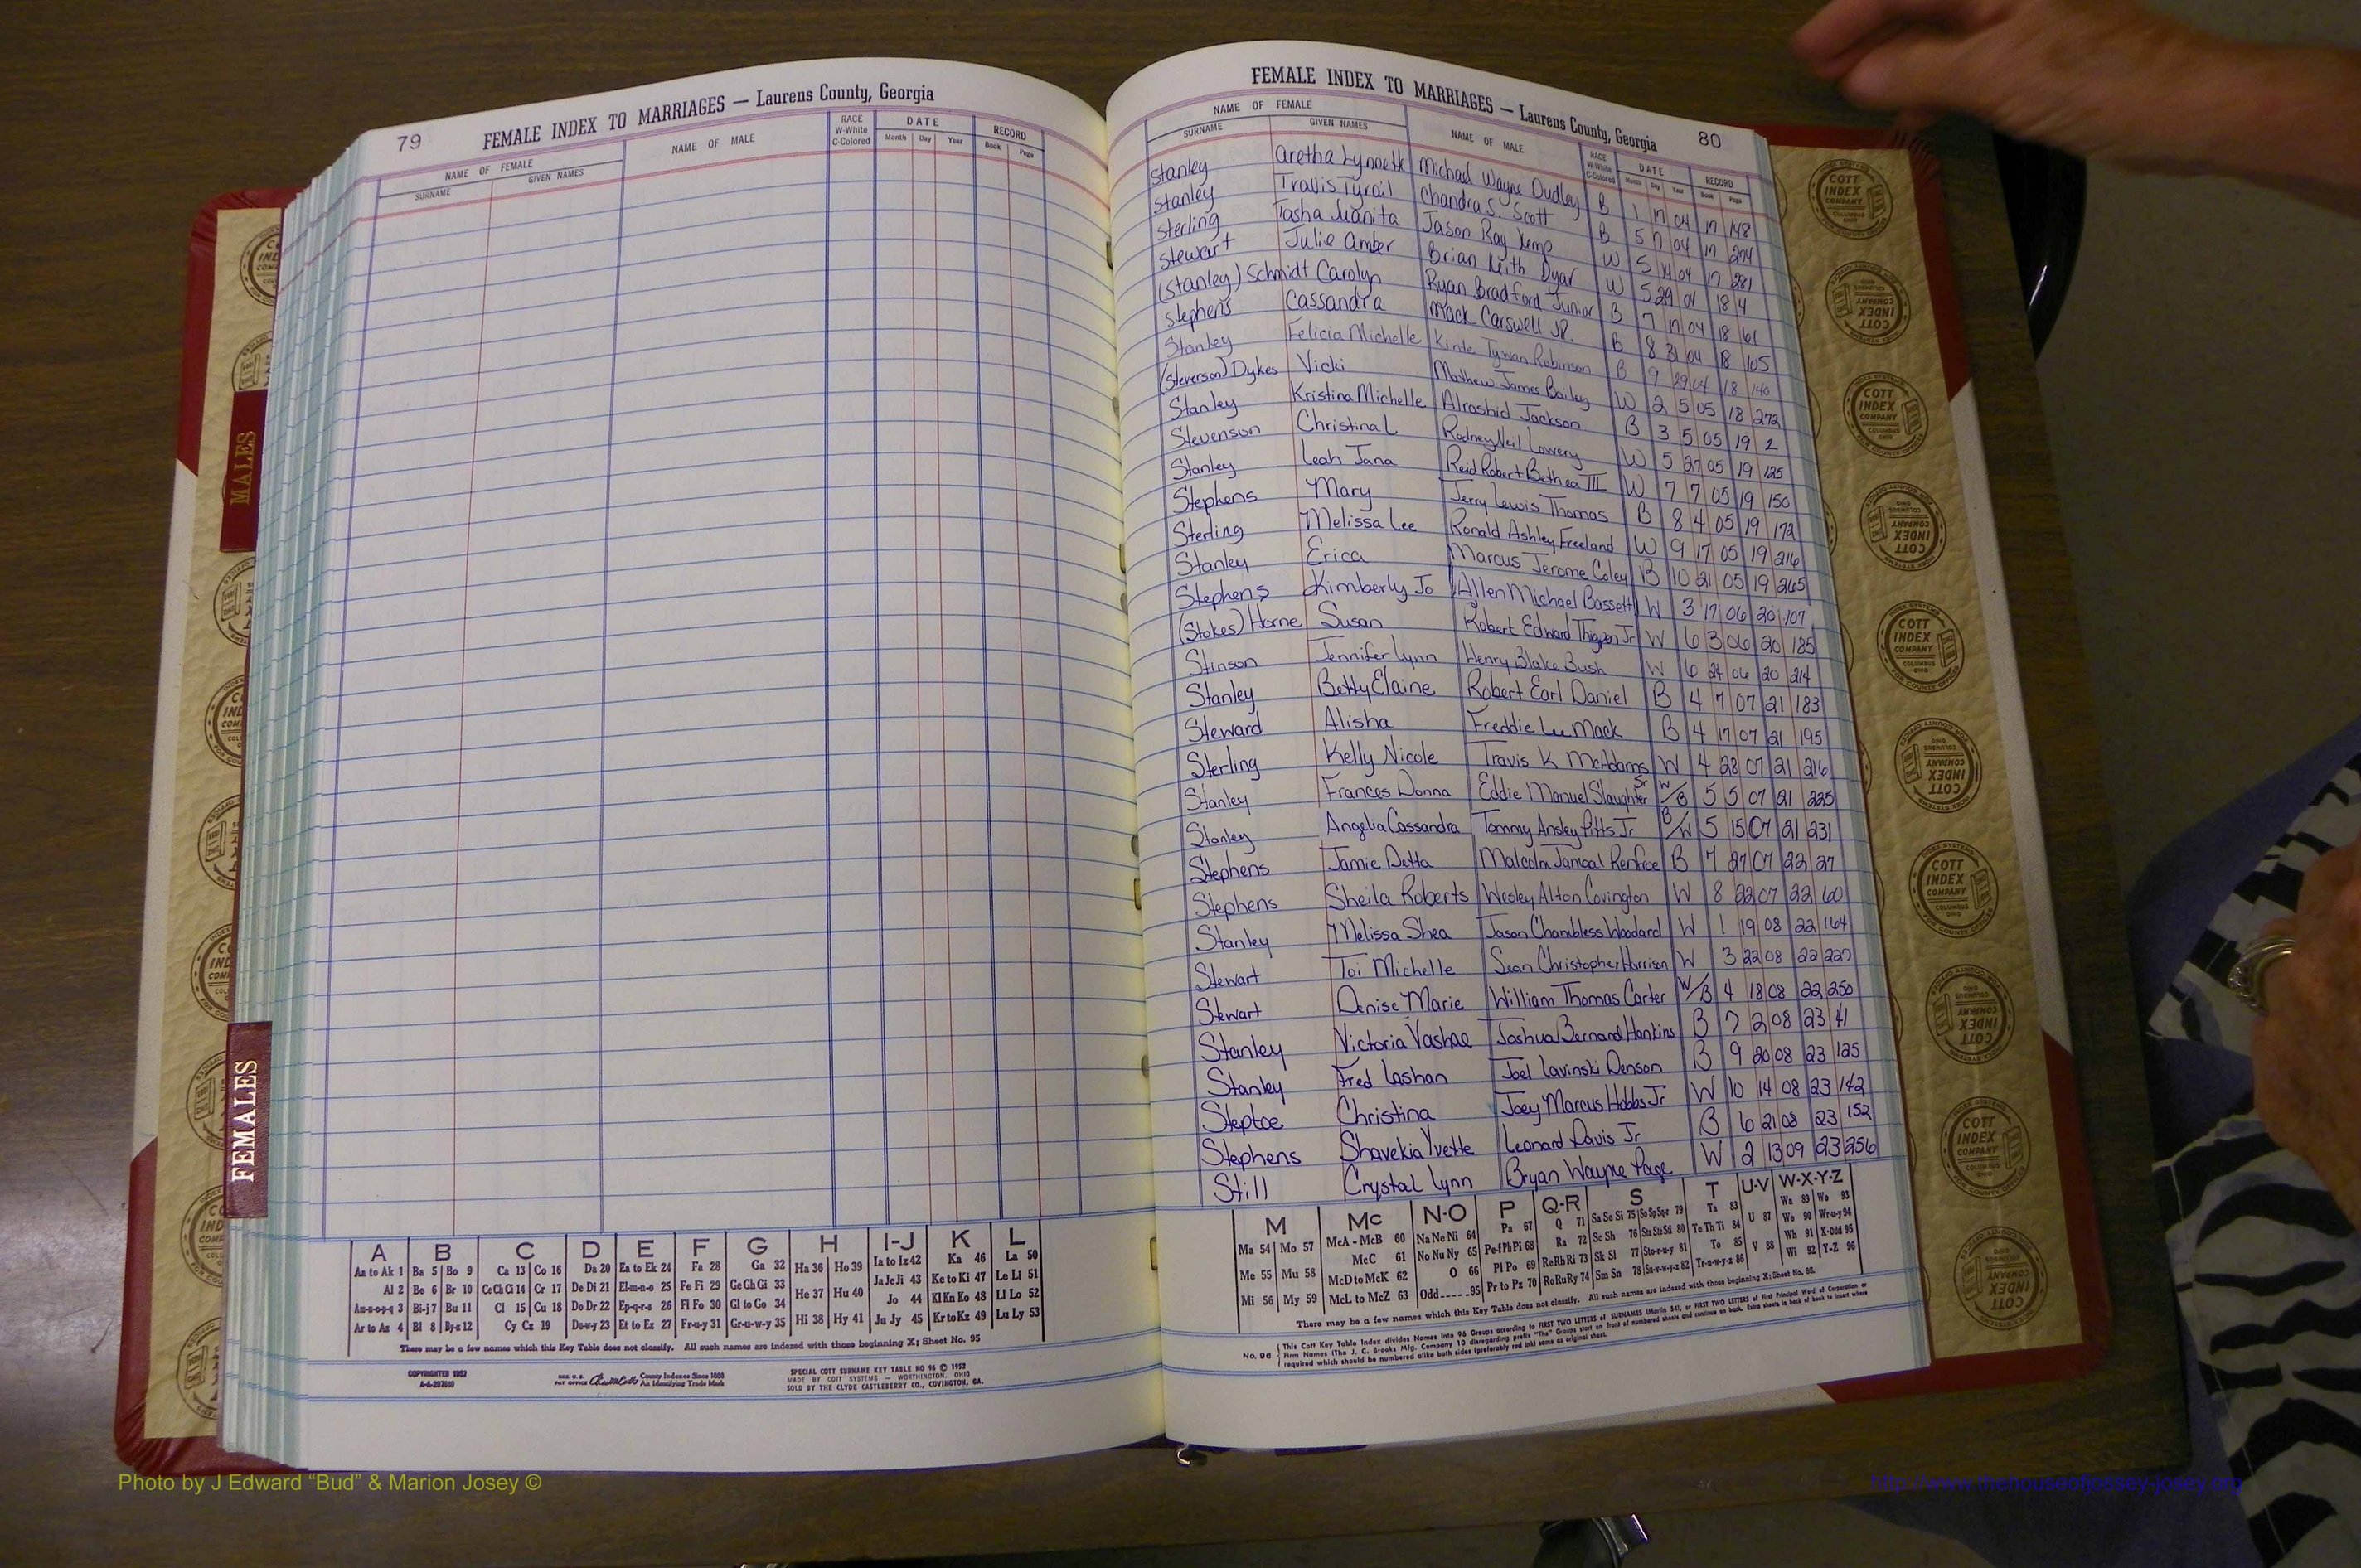 79
FEMALE INDEX TO MARRIAGES — Laurens County, Georgia
NAME OF FEMALE
SURNAME GIVEN NAMES
NAME OF MALE
RACE
W-White
C-Colored
DATE
Month Day Year
RECORD
Book Page
MALES
FEMALES
A B C D E F G H I-J K L
Aa to Ak 1 Ba 5 Bo 9 Ca 13 Co 16 Da 20 Ea to Ek 24 Fa 28 Ga 32 Ha 36 Ho 39 Ia to Iz 42 Ka 46 La 50
Al 2 Be 6 Br 10 Ce Ch Ci 14 Cr 17 De Di 21 El-m-n-o 25 Fe Fi 29 Ge Gh Gi 33 He 37 Hu 40 Ja Je Ji 43 Ke to Ki 47 Le Li 51
An-o-p-q 3 Bi-j 7 Bu 11 Cl 15 Cu 18 Do Dr 22 Ep-q-r-s 26 Fl Fo 30 Gl to Go 34 Hi 38 Hy 41 Jo 44 Kl Kn Ko 48 Ll Lo 52
Ar to Az 4 Bl 8 By-z 12 Cy Cz 19 Du-w-y 23 Et to Ez 27 Fr-u-y 31 Gr-u-w-y 35 Ju Jy 45 Kr to Kz 49 Lu Ly 53
There may be a few names which this Key Table does not classify. All such names are indexed with those beginning X; Sheet No. 95
COPYRIGHTED 1952
REG. U.S. PAT OFFICE County Indexes Since 1888
An Identifying Trade Mark
SPECIAL COTT SURNAME KEY TABLE NO 96 © 1952
MADE BY COTT SYSTEMS — WORTHINGTON, OHIO
SOLD BY THE CLYDE CASTLEBERRY CO., COVINGTON, GA.
FEMALE INDEX TO MARRIAGES — Laurens County, Georgia
80
NAME OF FEMALE
SURNAME GIVEN NAMES
NAME OF MALE
RACE
W-White
C-Colored
DATE
Month Day Year
RECORD
Book Page
Stanley Aretha Lynnette Michael Wayne Dudley B 1 17 04 17 148
Stanley Travis Tyrail Chandra S. Scott B 5 7 04 17 274
Sterling Tasha Juanita Jason Ray Kemp W 5 14 04 17 281
Stewart Julie Amber Brian Keith Dyar W 5 29 04 18 4
(Stanley) Schmidt Carolyn Ryan Bradford Junior B 7 17 04 18 61
Stephens Cassandra Mack Carswell JR. B 8 31 04 18 105
Stanley Felicia Michelle Kinte Tywan Robinson B 9 29 04 18 140
(Steverson) Dykes Vicki Mathew James Bailey W 2 5 05 18 272
Stanley Kristina Michelle Alrashid Jackson B 3 5 05 19 2
Stevenson Christina L Rodney Neil Lowery W 5 27 05 19 125
Stanley Leah Jana Reid Robert Bethea III W 7 7 05 19 150
Stephens Mary Jerry Lewis Thomas B 8 4 05 19 172
Sterling Melissa Lee Ronald Ashley Freeland W 9 17 05 19 216
Stanley Erica Marcus Jerome Coley B 10 21 05 19 265
Stephens Kimberly Jo Allen Michael Bassett W 3 17 06 20 107
(Stokes) Horne Susan Robert Edward Thigpen Jr W 6 3 06 20 185
Stinson Jennifer Lynn Henry Blake Bush W 6 24 06 20 214
Stanley Betty Elaine Robert Earl Daniel B 4 7 07 21 183
Steward Alisha Freddie Lee Mack B 4 17 07 21 195
Sterling Kelly Nicole Travis K McAdams W 4 28 07 21 216
Stanley Frances Donna Eddie Manuel Slaughter Sr W/B 5 5 07 21 225
Stanley Angelia Cassandra Tommy Ansley Pitts Jr B/W 5 15 07 21 231
Stephens Jamie Detta Malcolm Jamaal Renfroe B 7 27 07 22 27
Stephens Sheila Roberts Wesley Alton Covington W 8 22 07 22 60
Stanley Melissa Shea Jason Chambless Woodard W 1 19 08 22 164
Stewart Toi Michelle Sean Christopher Harrison W 3 22 08 22 227
Stewart Denise Marie William Thomas Carter W/B 4 18 08 22 250
Stanley Victoria Vashae Joshua Bernard Hankins B 7 2 08 23 41
Stanley Fred Lashan Joel Lavinski Denson B 9 20 08 23 125
Steptoe Christina Joey Marcus Hobbs Jr W 10 14 08 23 142
Stephens Shavekia Yvette Leonard Davis Jr B 6 21 08 23 152
Still Crystal Lynn Bryan Wayne Page W 2 13 09 23 256
M Mc N-O P Q-R S T U-V W-X-Y-Z
Ma 54 Mo 57 McA - McB 60 Na Ne Ni 64 Pa 67 Q 71 Sa Se Si 75 So Sp Sq-r 79 Ta 83 U 87 Wa 89 Wo 93
Me 55 Mu 58 McC 61 No Nu Ny 65 Pe-f Ph Pi 68 Ra 72 Sc Sh 76 Sta Ste Sti 80 Te Th Ti 84 V 88 We 90 Wr-u-y 94
Mi 56 My 59 McD to McK 62 O 66 Pl Po 69 Re Rh Ri 73 Sk Sl 77 Sto-r-u-y 81 To 85 Wh 91 X-Odd 95
McL to McZ 63 Odd 95 Pr to Pz 70 Ro Ru Ry 74 Sm Sn 78 Su-v-w-y-z 82 Tr-u-w-y-z 86 Wi 92 Y-Z 96
There may be a few names which this Key Table does not classify. All such names are indexed with those beginning X; Sheet No. 95.
No. 96 This Cott Key Table Index divides Names into 96 Groups according to FIRST TWO LETTERS of SURNAMES (Martin 54), or FIRST TWO LETTERS of First Principal Word of Corporation or
Firm Names (The J. C. Brooks Mfg. Company 10 disregarding prefix "The" Groups start on front of numbered sheets and continue on back. Extra sheets in back of book to insert where
required which should be numbered alike both sides (preferably red ink) same as original sheet.
COTT INDEX COMPANY
COLUMBUS OHIO
INDEX SYSTEMS
FOR COUNTY OFFICES
Photo by J Edward “Bud” & Marion Josey ©
http://www.thehouseofjossey-josey.org